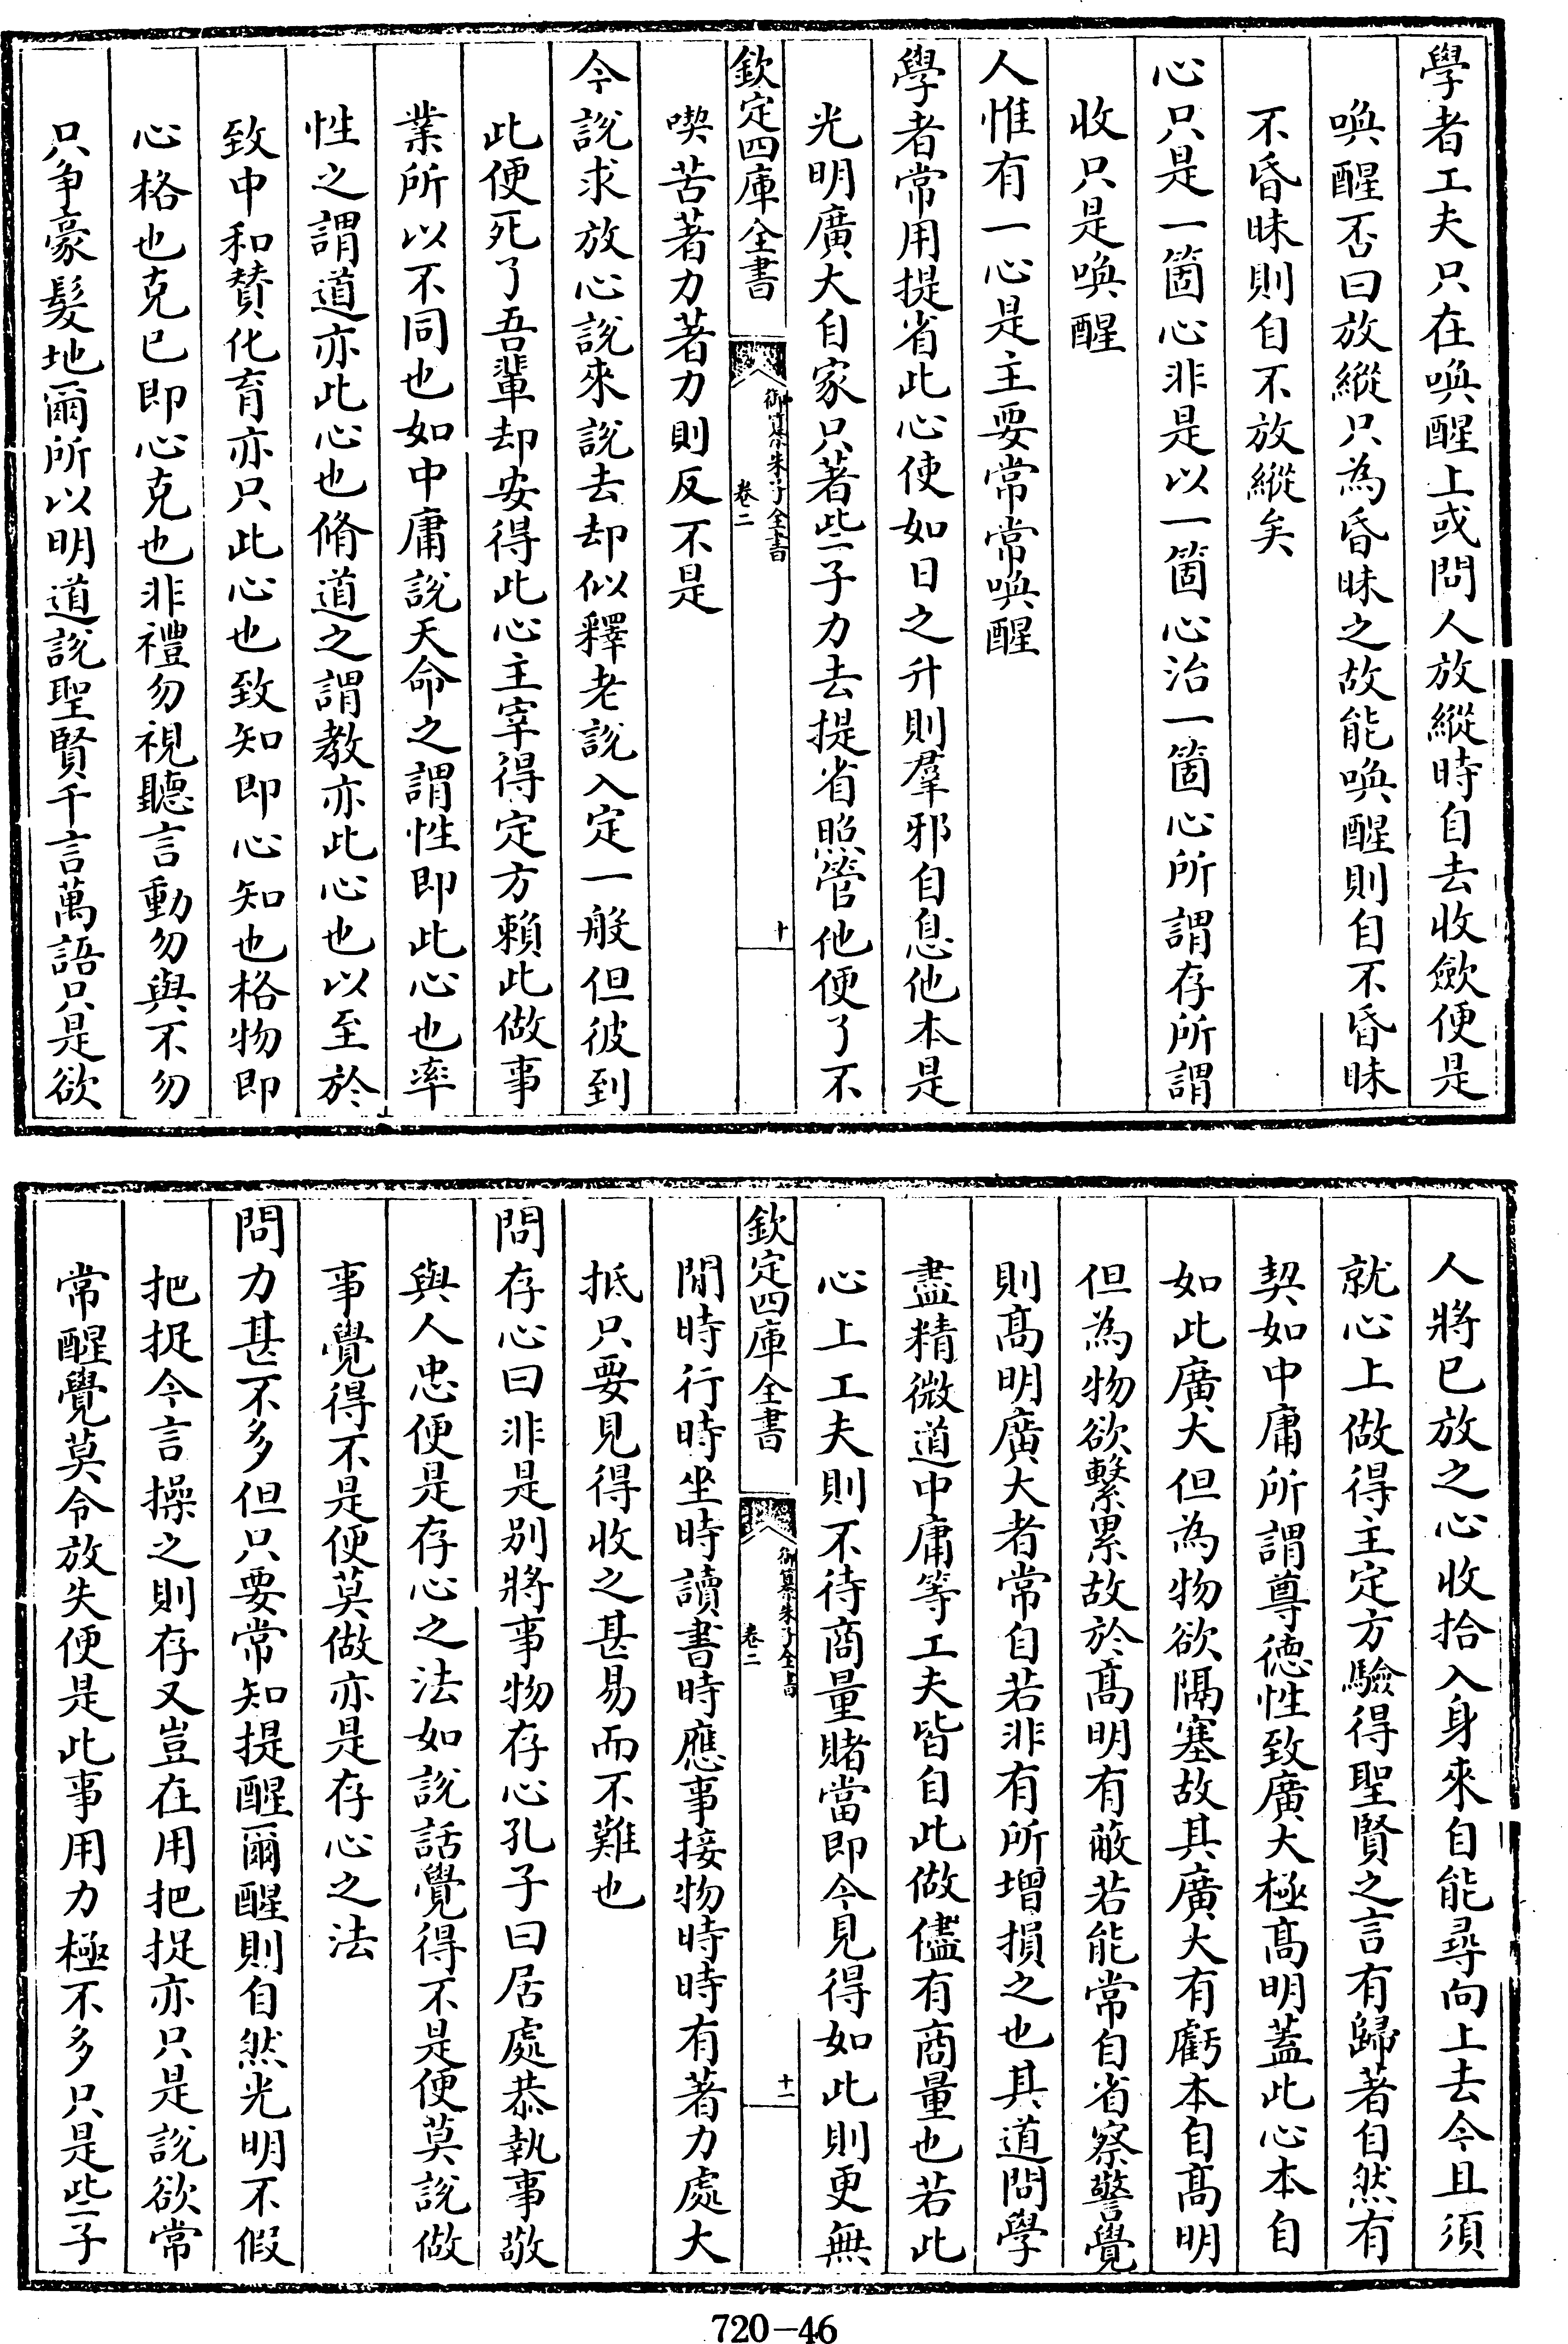 學者工夫只在喚醒上或問人放縱時自去收斂便是
喚醒否曰放縱只為昏昧之故能喚醒則自不昏昧
不昏昧則自不放縱矣
心只是一箇心非是以一箇心治一箇心所謂存所謂
收只是喚醒
人惟有一心是主要常常喚醒
學者常用提省此心使如日之升則羣邪自息他本是
光明廣大自家只著些子力去提省照管他便了不
欽定四庫全書
御纂朱子全書
卷二
十
喫苦著力著力則反不是
今說求放心說來說去却似釋老說入定一般但彼到
此便死了吾輩却安得此心主宰得定方賴此做事
業所以不同也如中庸說天命之謂性即此心也率
性之謂道亦此心也脩道之謂教亦此心也以至於
致中和賛化育亦只此心也致知即心知也格物即
心格也克已即心克也非禮勿視聽言動勿與不勿
只争豪髮地爾所以明道說聖賢千言萬語只是欲
人將已放之心收拾入身來自能尋向上去今且須
就心上做得主定方驗得聖賢之言有歸著自然有
契如中庸所謂尊德性致廣大極髙明蓋此心本自
如此廣大但為物欲隔塞故其廣大有虧本自髙明
但為物欲繫累故於髙明有蔽若能常自省察警覺
則髙明廣大者常自若非有所增損之也其道問學
盡精微道中庸等工夫皆自此做儘有商量也若此
心上工夫則不待商量賭當即今見得如此則更無
欽定四庫全書
御纂朱子全書
卷二
十一
閒時行時坐時讀書時應事接物時時時有著力處大
抵只要見得收之甚易而不難也
問存心曰非是別將事物存心孔子曰居處恭執事敬
與人忠便是存心之法如說話覺得不是便莫說做
事覺得不是便莫做亦是存心之法
問力甚不多但只要常知提醒爾醒則自然光明不假
把捉今言操之則存又豈在用把捉亦只是說欲常
常醒覺莫令放失便是此事用力極不多只是些子
720-46